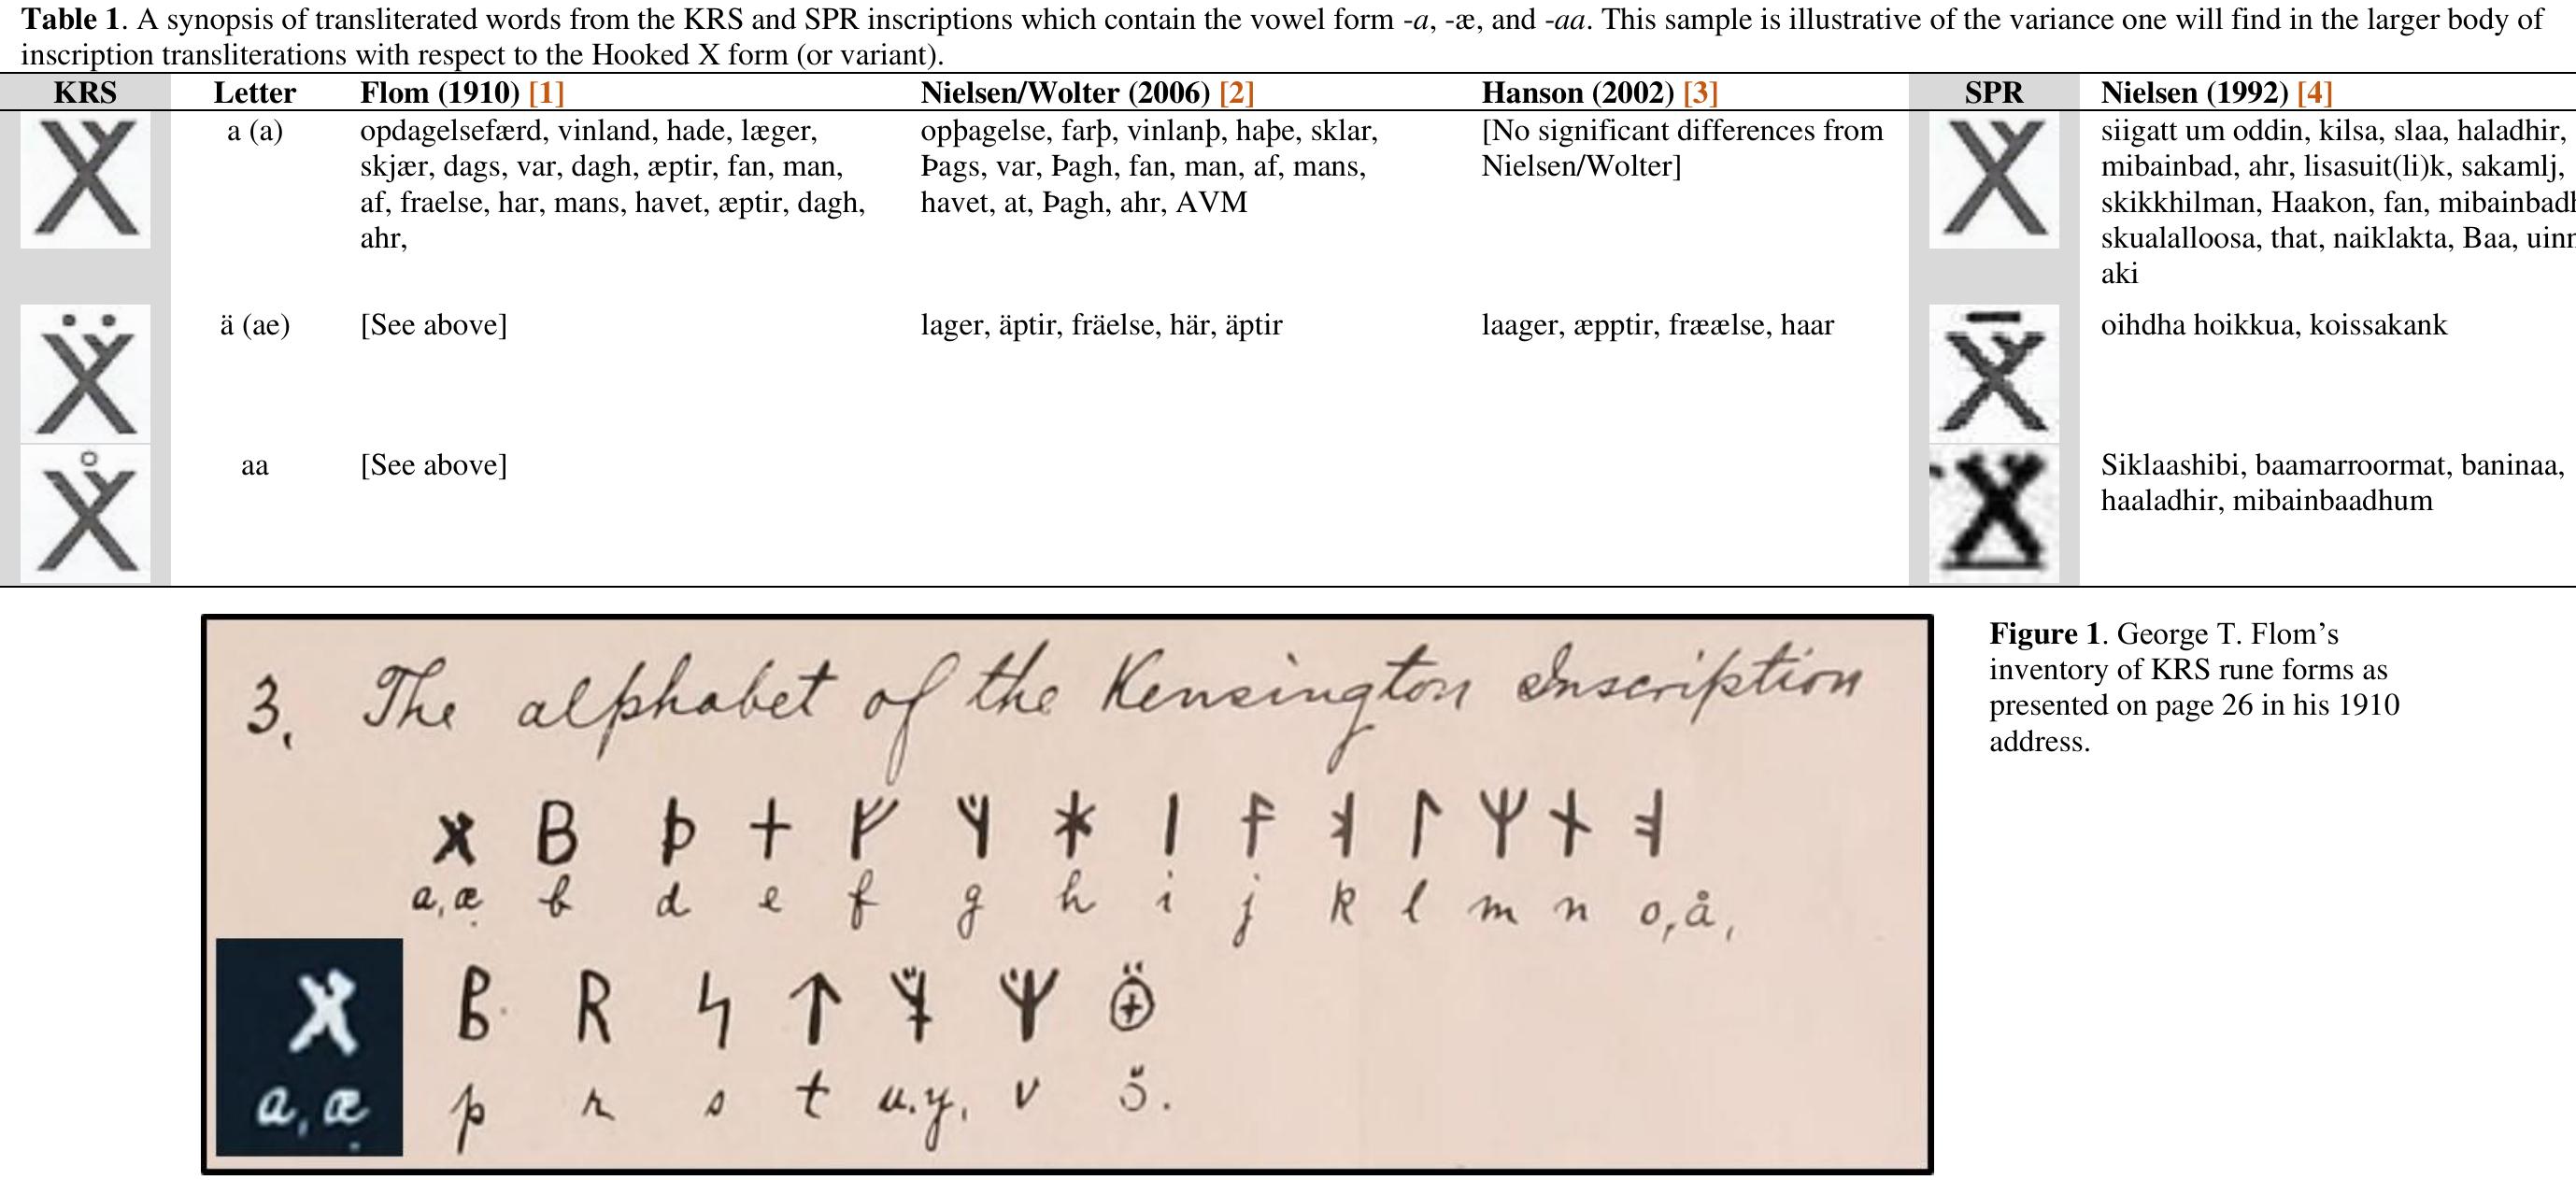 Table 1. A synopsis of transliterated words from the KRS and SPR inscriptions which contain the vowel form -a, -æ, and -aa. This sample is illustrative of the variance one will find in the larger body of
inscription transliterations with respect to the Hooked X form (or variant).
KRS Letter Flom (1910) [1] Nielsen/Wolter (2006) [2] Hanson (2002) [3] SPR Nielsen (1992) [4]
a (a)
opdagelsefærd, vinland, hade, læger,
skjær, dags, var, dagh, æptir, fan, man,
af, fraelse, har, mans, havet, æptir, dagh,
ahr,
opþagelse, farþ, vinlanþ, haþe, sklar,
Þags, var, Þagh, fan, man, af, mans,
havet, at, Þagh, ahr, AVM
[No significant differences from
Nielsen/Wolter]
siigatt um oddin, kilsa, slaa, haladhir,
mibainbad, ahr, lisasuit(li)k, sakamlj,
skikkhilman, Haakon, fan,
skualalloosa, that, naiklakta, Baa,
aki
ä (ae) [See above] lager, äptir, fräelse, här, äptir laager, æpptir, frææelse, haar oihdha hoikkua, koissakank
aa [See above]
Siklaashibi, baamarroormat, baninaa,
haaladhir, mibainbaadhum
3. The alphabet of the Kensington Inscription
a,æ b d e f g h i j k l m n o,å,
a, æ p r s t u.y, v ö.
Figure 1. George T. Flom’s
inventory of KRS rune forms as
presented on page 26 in his 1910
address.